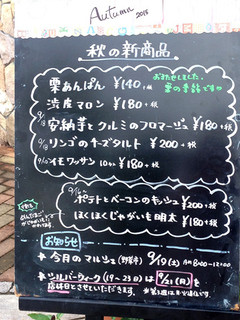 Autumn 2015
秋の新商品
栗あんぱん ¥140+税
おまたせしました。
栗の季節です
渋皮マロン ¥180+税
9/8 安納芋とクルミのフロマージュ ¥180+税
9/8 リンゴのチーズタルト ¥200+税
イモワッサン 10コ ¥180+税
9/16 ポテトとベーコンのキッシュ ¥200+税
ほくほくじゃがいも明太 ¥180+税
お知らせ
今月のマルシェ(野菜市) 9/19(土) AM8:00〜12:00
シルバーウィーク(19〜23日)は 9/21(月)を
店休日とさせていただきます。